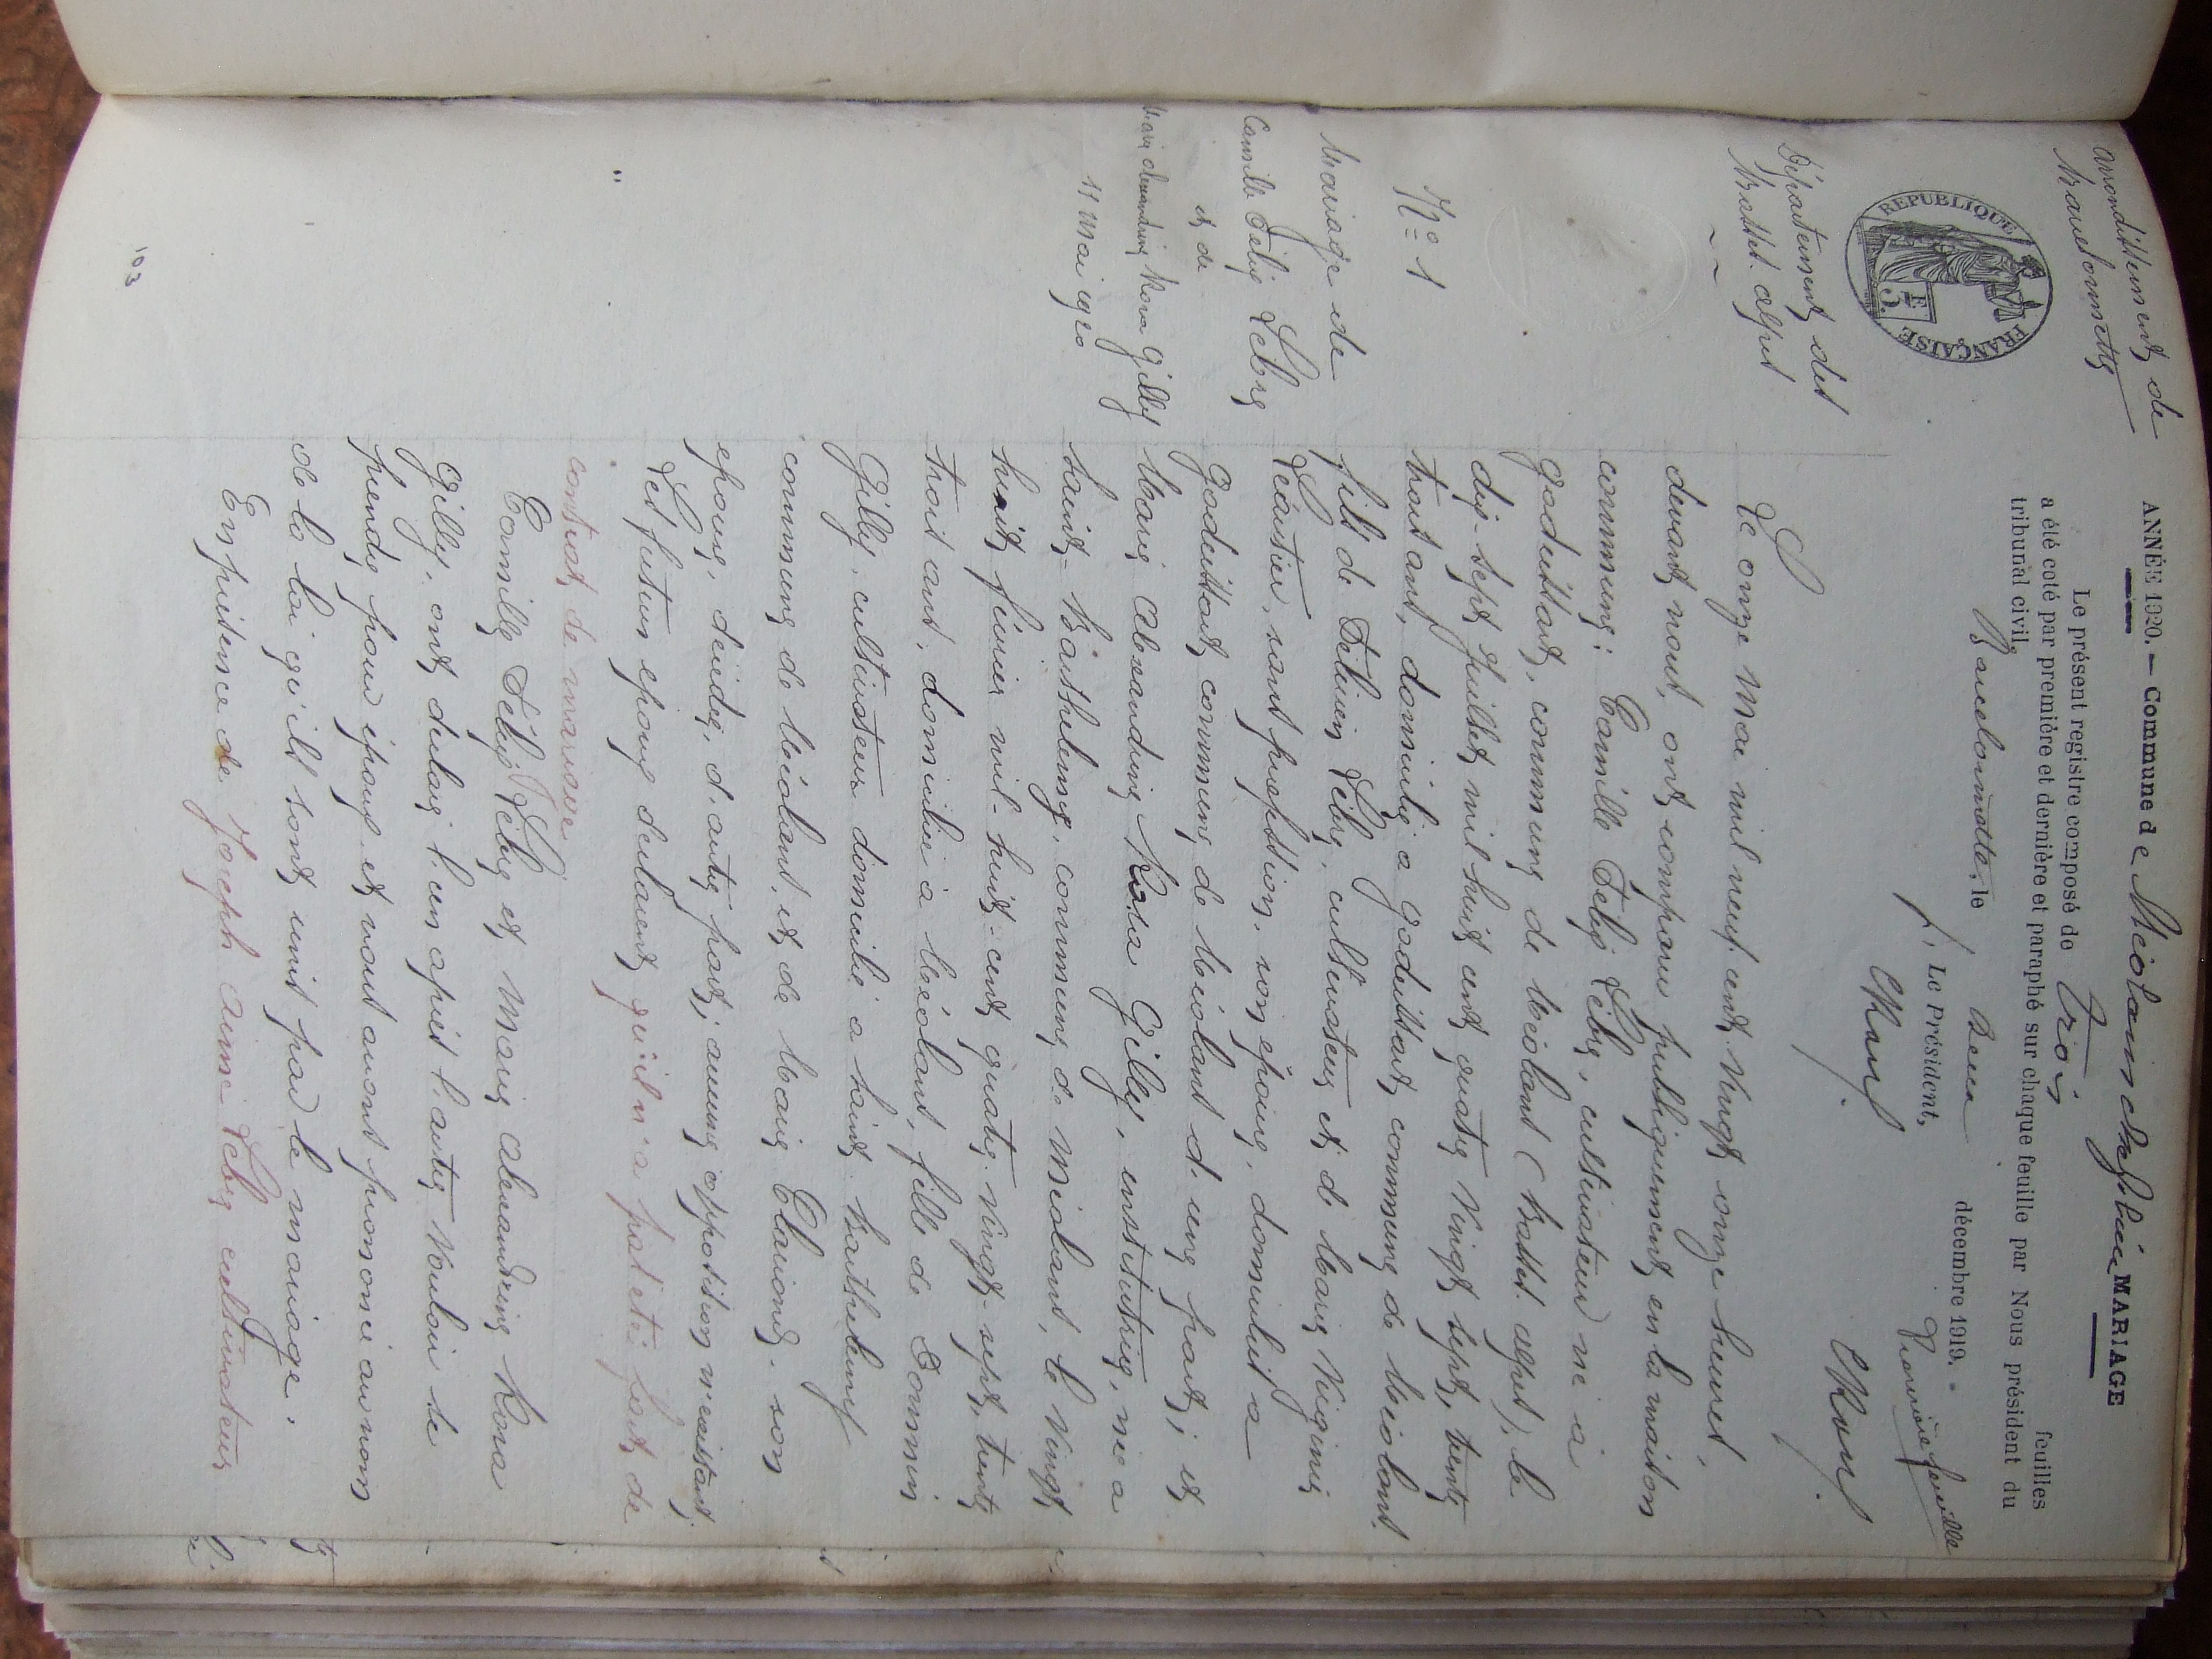 Arrondissement de
Barcelonnette
ANNÉE 1920. — Commune de Méolans Laverq MARIAGE
Le présent registre composé de Trois feuilles
a été coté par première et dernière et paraphé sur chaque feuille par Nous président du
tribunal civil,
Barcelonnette, le Deux décembre 1919.
Première feuille
Le Président,
REPUBLIQUE FRANÇAISE
Département des
Basses alpes
N° 1
Mariage de
Camille Félix
et de
Marie Alexandrine Rosa Gilly
11 Mai 1920
Le onze Mai mil neuf cent Vingt onze heures,
devant nous, ont comparu publiquement en la maison
commune: Camille Félix, cultivateur né à
Godeissart, commune de Méolans (Basses alpes), le
dix-sept Juillet mil huit cent quatre Vingt sept, trente
trois ans, domicilié à Godeissart, commune de Méolans
fils de Félicien, cultivateur et de Marie Virginie
Léautier, sans profession, son épouse, domiciliés à
Godeissart commune de Méolans d'une part; et
Marie Alexandrine Rosa Gilly, institutrice, née à
Saint-Barthélemy, commune de Méolans, le Vingt
huit février mil-huit-cent quatre-Vingt-sept, trente
trois ans, domiciliée à Méolans, fille de Firmin
Gilly, cultivateur domicilié à Saint Barthélemy
commune de Méolans et de Marie Clarion, son
épouse, décédée, d'autre part; aucune opposition n'existant.
Les futurs époux déclarent qu'il n'a pas été fait de
contrat de mariage
Camille Félix et Marie Alexandrine Rosa
Gilly, ont déclaré l'un après l'autre Vouloir se
prendre pour époux et nous avons prononcé au nom
de la loi qu'ils sont unis par le mariage.
En présence de Joseph Aimé cultivateur
103